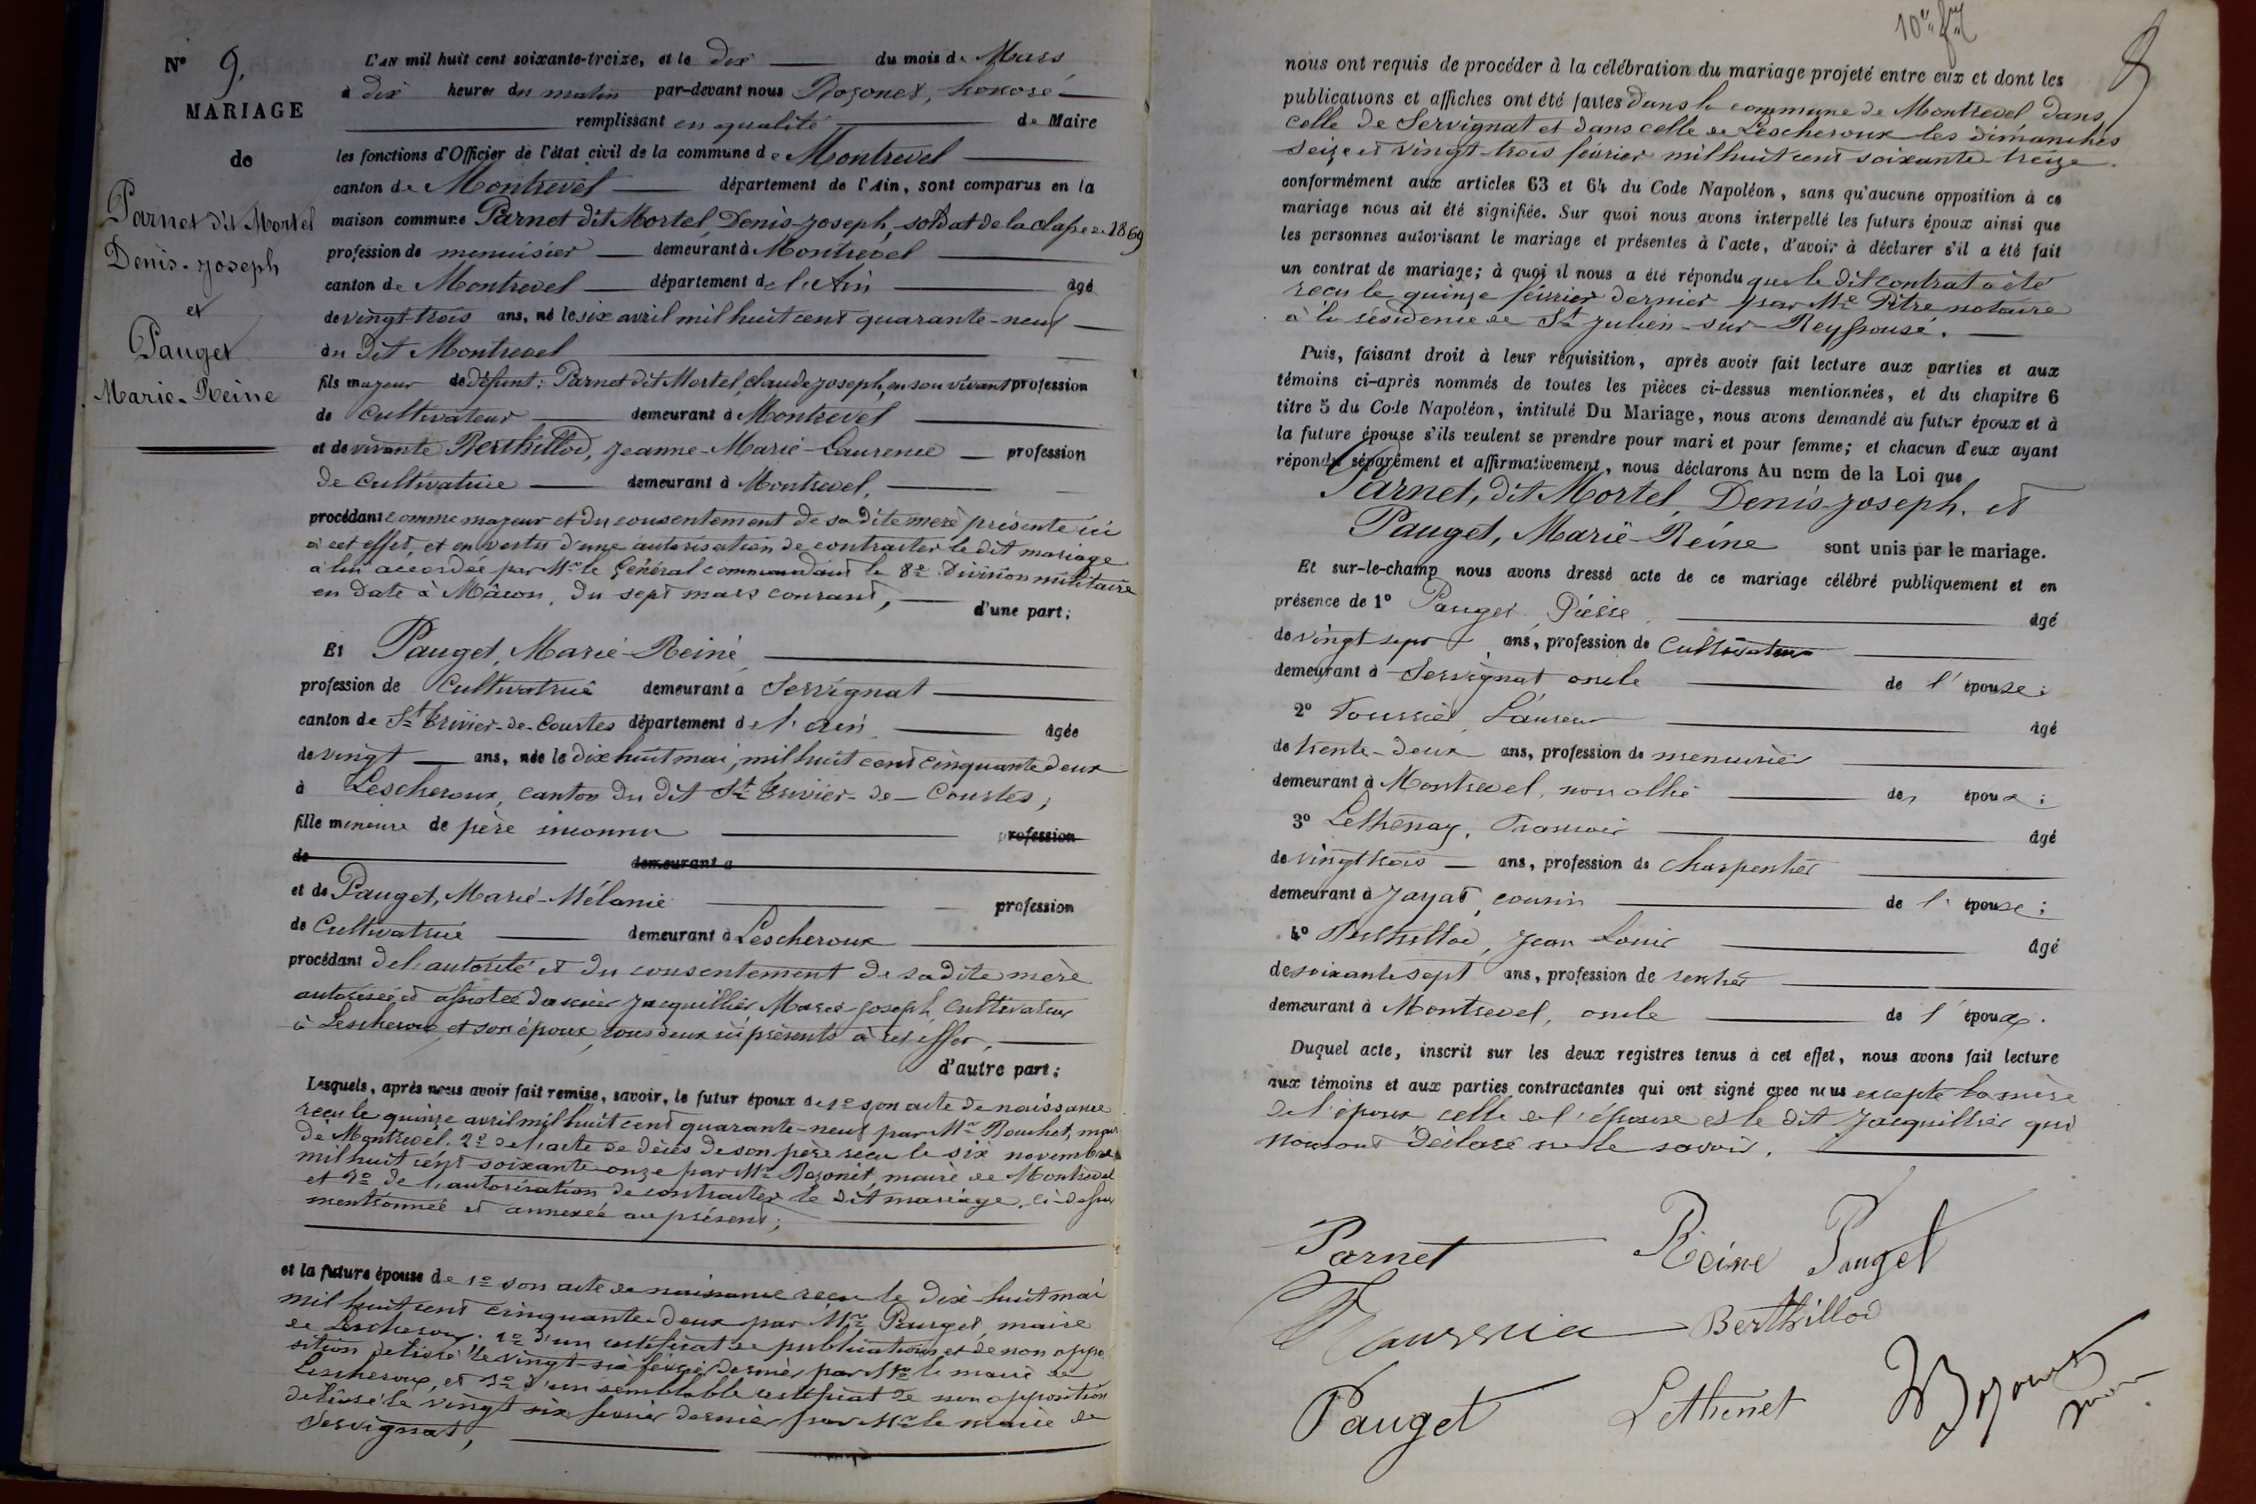 N° 9.
MARIAGE
de
Parnet dit Mortel
Denis-Joseph
et
Pauget
Marie-Reine
L'AN mil huit cent soixante-treize, et le dix du mois de Mars
à dix heures du matin par-devant nous Bozonet, honoré
remplissant en qualité de Maire
les fonctions d'Officier de l'état civil de la commune de Montrevel
canton de Montrevel département de l'Ain, sont comparus en la
maison commune Parnet dit Mortel, Denis-Joseph, soldat de la classe de 1869
profession de menuisier demeurant à Montrevel
canton de Montrevel département de l'Ain âgé
de vingt-trois ans, né le six avril mil huit cent quarante-neuf
au dit Montrevel
fils majeur de défunt: Parnet dit Mortel, Claude Joseph, en son vivant profession
de cultivateur demeurant à Montrevel
et de vivante Berthillod, Jeanne-Marie-Laurence profession
de cultivatrice demeurant à Montrevel,
procédant comme majeur et du consentement de sa dite mère présente ici
à cet effet, et en vertu d'une autorisation de contracter le dit mariage
à lui accordée par Mr le Général commandant la 8e Division militaire
en date à Mâcon, du sept mars courant,
d'une part;
Et Pauget, Marie-Reine
profession de cultivatrice demeurant à Servignat
canton de St Trivier-de-Courtes département de l'ain âgée
de vingt ans, née le dix huit mai, mil huit cent cinquante deux
à Lescheroux, canton du dit St Trivier-de-Courtes;
fille mineure de père inconnu profession
de demeurant à
et de Pauget, Marie-Mélanie profession
de cultivatrice demeurant à Lescheroux
procédant de l'autorité et du consentement de sa dite mère
autorisée et assistée du sieur Jacquillier Marie Joseph, cultivateur
à Lescheroux et son époux, tous deux ici présents à cet effet,
d'autre part;
Lesquels, après nous avoir fait remise, savoir, le futur époux de 1° son acte de naissance
reçu le quinze avril mil huit cent quarante-neuf par Mr Bouchet, maire
de Montrevel. 2° de l'acte de décès de son père reçu le six novembre
mil huit cent soixante onze par Mr Bozonet, maire de Montrevel
et 3° de l'autorisation de contracter le dit mariage, ci-dessus
mentionnée et annexée au présent;
et la future épouse de 1° son acte de naissance reçu le dix-huit mai
mil huit cent cinquante-deux par Mr Pauget, maire
de Lescheroux. 2° d'un certificat de publications et de non oppo-
sition délivré le vingt-six février dernier par Mr le maire de
Lescheroux, et 3° d'un semblable certificat de non opposition
délivré le vingt six février dernier par Mr le maire de
Servignat,
nous ont requis de procéder à la célébration du mariage projeté entre eux et dont les
publications et affiches ont été faites dans la commune de Montrevel dans
celle de Servignat et dans celle de Lescheroux les dimanches
seize et vingt-trois février mil huit cent soixante treize.
conformément aux articles 63 et 64 du Code Napoléon, sans qu'aucune opposition à ce
mariage nous ait été signifiée. Sur quoi nous avons interpellé les futurs époux ainsi que
les personnes autorisant le mariage et présentes à l'acte, d'avoir à déclarer s'il a été fait
un contrat de mariage; à quoi il nous a été répondu que le dit contrat a été
reçu le quinze février dernier par Me Pitre notaire
à la résidence de St Julien-sur-Reyssouze.
Puis, faisant droit à leur réquisition, après avoir fait lecture aux parties et aux
témoins ci-après nommés de toutes les pièces ci-dessus mentionnées, et du chapitre 6
titre 5 du Code Napoléon, intitulé Du Mariage, nous avons demandé au futur époux et à
la future épouse s'ils veulent se prendre pour mari et pour femme; et chacun d'eux ayant
répondu séparément et affirmativement, nous déclarons Au nom de la Loi que
Parnet, dit Mortel, Denis-Joseph. et
Pauget, Marie-Reine sont unis par le mariage.
Et sur-le-champ nous avons dressé acte de ce mariage célébré publiquement et en
présence de 1° Pauget, Pierre, âgé
de vingt sept ans, profession de cultivateur
demeurant à Servignat oncle de l'épouse;
2° Toussié Laurent âgé
de trente-deux ans, profession de menuisier
demeurant à Montrevel, non allié des époux;
3° Lethenay, François âgé
de vingt trois ans, profession de charpentier
demeurant à Jayat, cousin de l'épouse;
4° Berthillod, Jean Louis âgé
de soixante sept ans, profession de rentier
demeurant à Montrevel, oncle de l'époux.
Duquel acte, inscrit sur les deux registres tenus à cet effet, nous avons fait lecture
aux témoins et aux parties contractantes qui ont signé avec nous excepté la mère
de l'époux celle de l'épouse et le dit Jacquillier qui
nous ont déclaré ne le savoir.
Parnet Reine Pauget
Berthillod
Pauget Lethenet Bozonet
maire